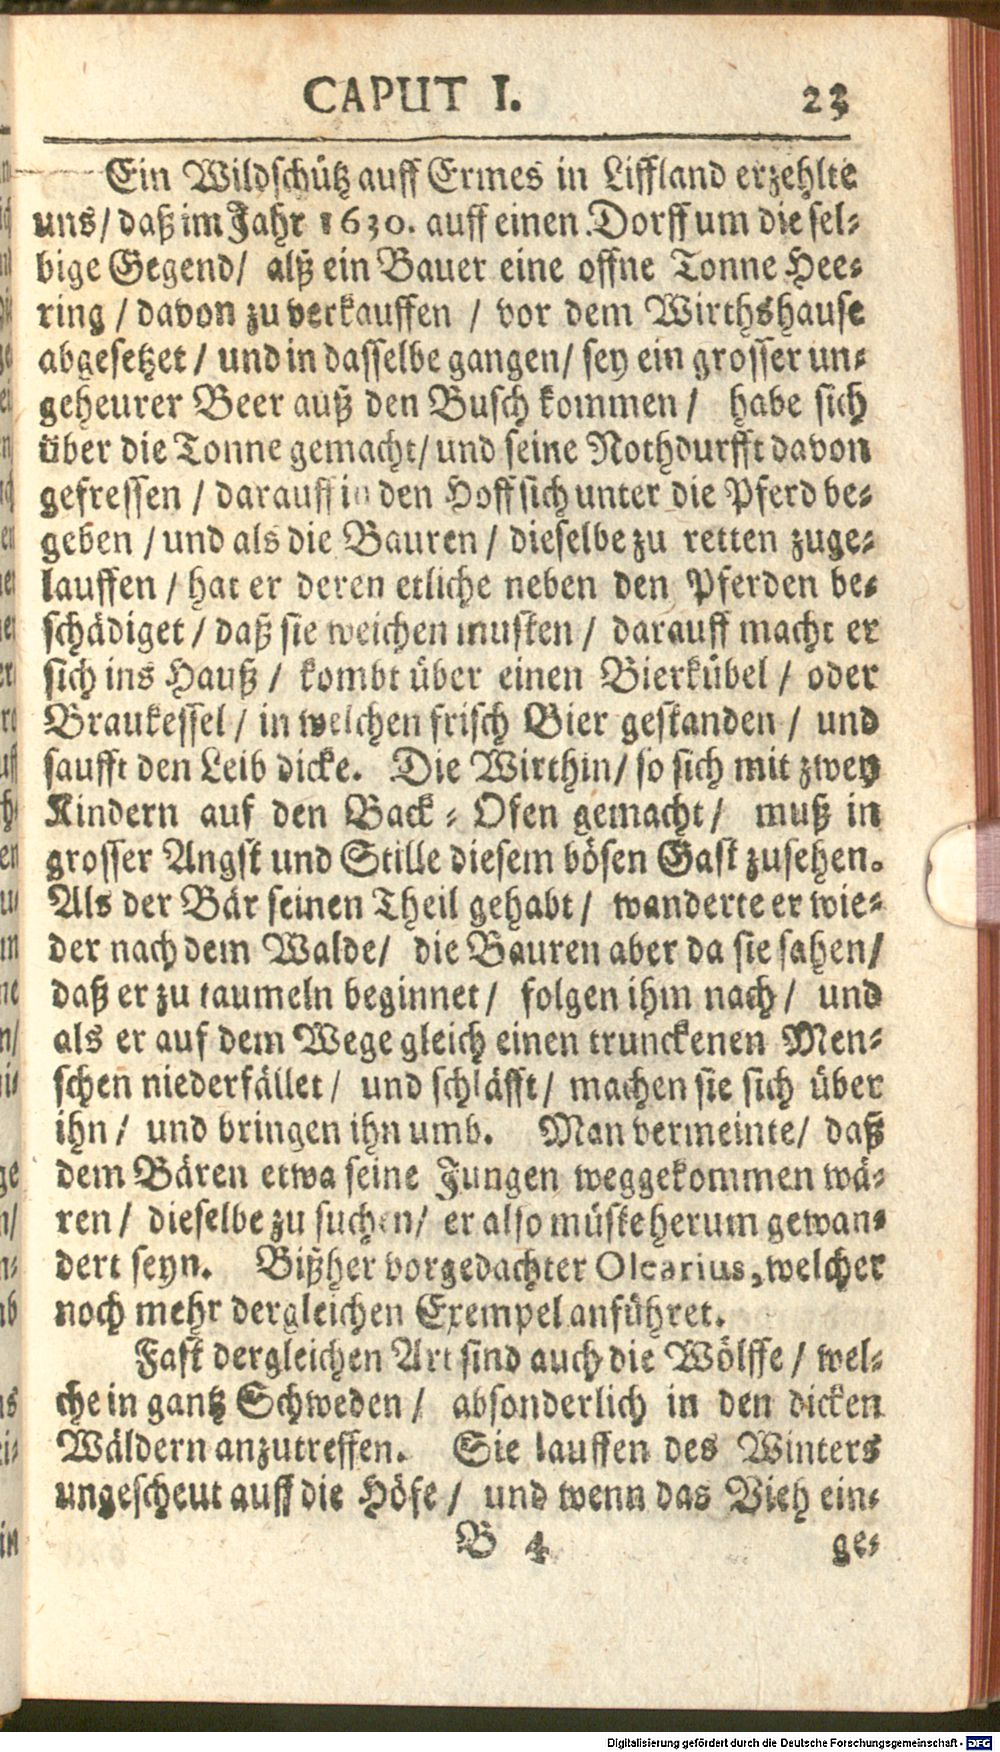 CAPUT I. 23
Ein Wildschütz auff Ermes in Liffland erzehlte
uns/ daß im Jahr 1630. auff einen Dorff um diesel-
bige Gegend/ alß ein Bauer eine offne Tonne Hee-
ring / davon zu verkauffen / vor dem Wirthshause
abgesetzet / und in dasselbe gangen/ sey ein grosser un-
geheurer Beer auß den Busch kommen / habe sich
über die Tonne gemacht/ und seine Nothdurfft davon
gefressen / darauff in den Hoff sich unter die Pferd be-
geben / und als die Bauren / dieselbe zu retten zuge-
lauffen / hat er deren etliche neben den Pferden be-
schädiget / daß sie weichen musten / darauff macht er
sich ins Hauß / kombt über einen Bierkübel / oder
Braukessel / in welchen frisch Bier gestanden / und
saufft den Leib dicke. Die Wirthin/ so sich mit zwey
Kindern auf den Back-Ofen gemacht/ muß in
grosser Angst und Stille diesem bösen Gast zusehen.
Als der Bär seinen Theil gehabt / wanderte er wie-
der nach dem Walde/ die Bauren aber da sie sahen/
daß er zu taumeln beginnet / folgen ihm nach / und
als er auf dem Wege gleich einen trunckenen Men-
schen niederfället / und schläfft / machen sie sich über
ihn / und bringen ihn umb. Man vermeinte/ daß
dem Bären etwa seine Jungen weggekommen wä-
ren / dieselbe zu suchen/ er also müste herum gewan-
dert seyn. Bißher vorgedachter Olearius, welcher
noch mehr dergleichen Exempel anführet.
Fast dergleichen Art sind auch die Wölffe / wel-
che in gantz Schweden / absonderlich in den dicken
Wäldern anzutreffen. Sie lauffen des Winters
ungescheut auff die Höfe / und wenn das Vieh ein-
B 4 ge-
Digitalisierung gefördert durch die Deutsche Forschungsgemeinschaft - DFG